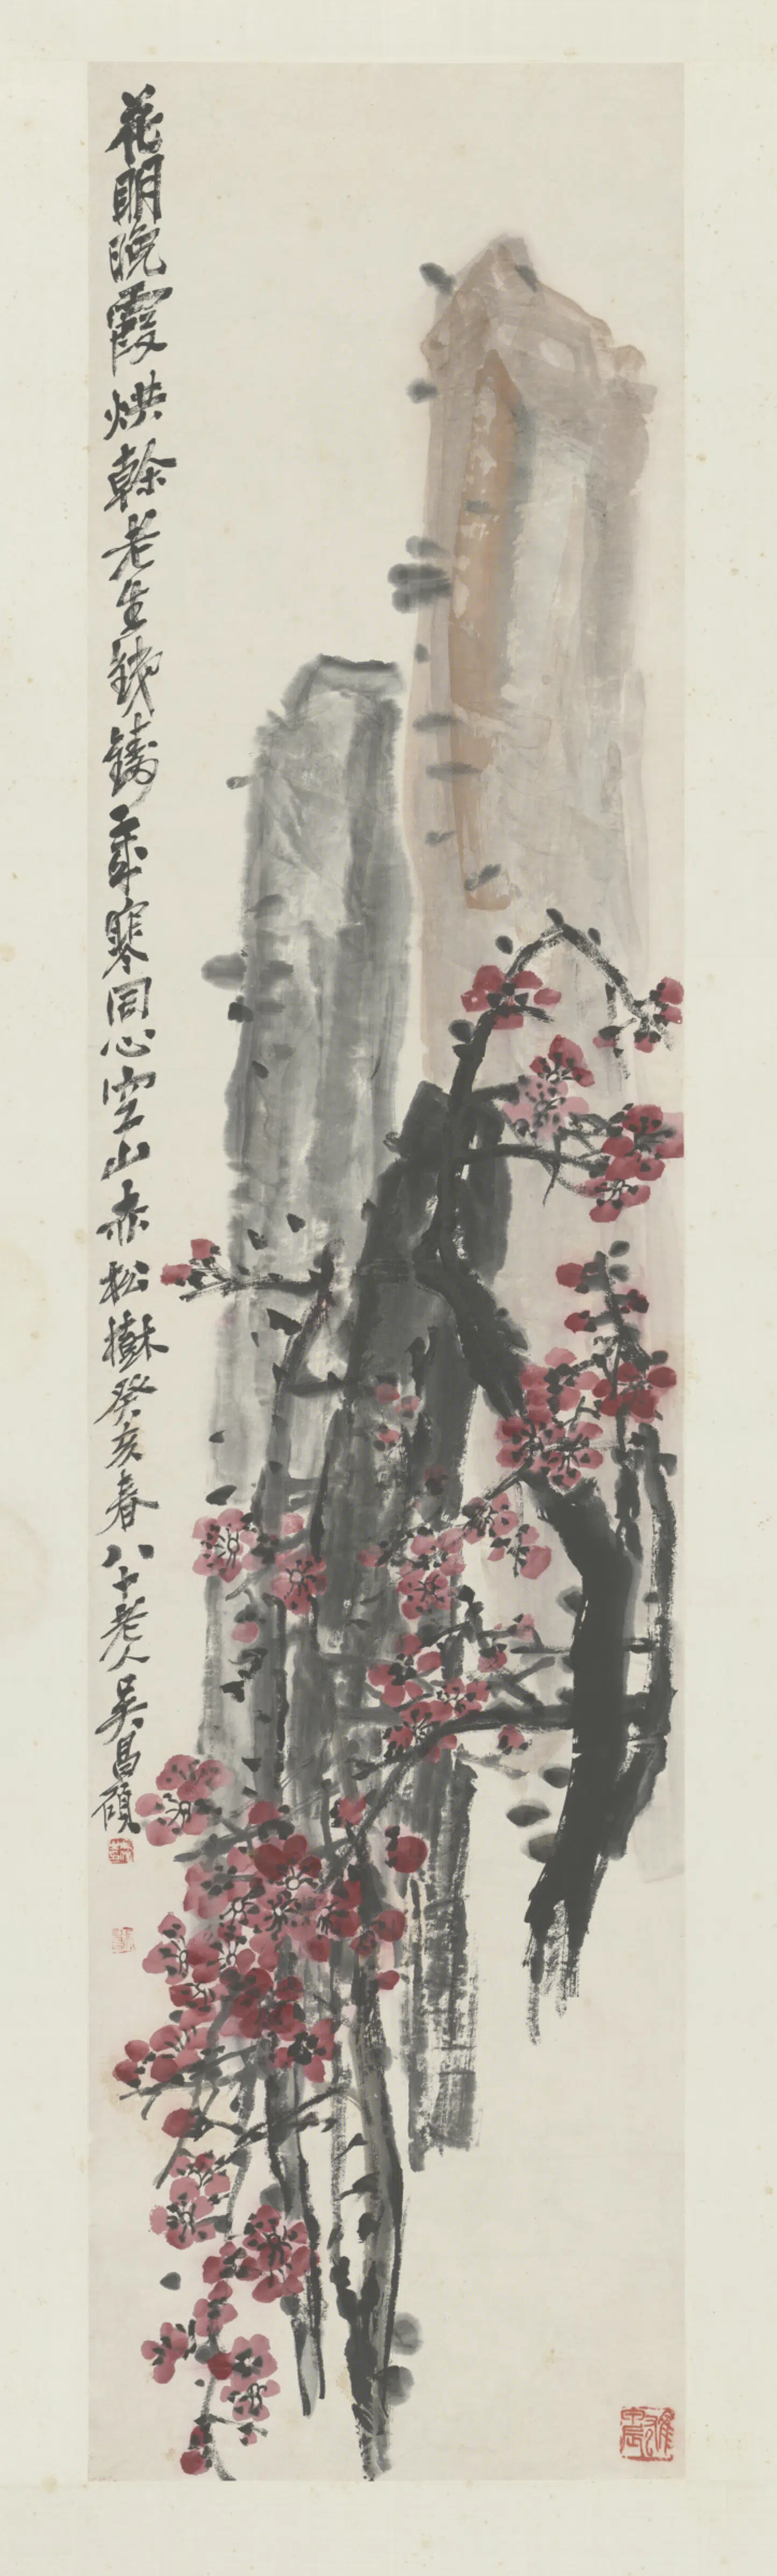 花明晚霞烘榦老生鐵鑄歲寒同心空山赤松樹癸亥春八十老人吳昌碩